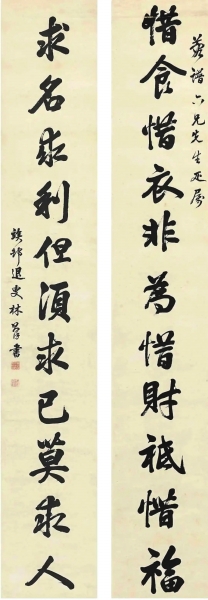 藝譜六兄先生正属
惜食惜衣非為惜財祗惜福
求名求利但須求己莫求人
退叟林書